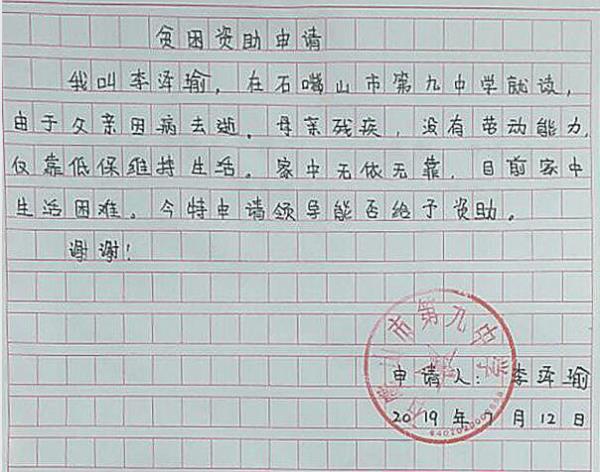 贫困资助申请
我叫李泽瑜，在石嘴山市第九中学就读，
由于父亲因病去逝。母亲残疾，没有劳动能力，
仅靠低保维持生活。家中无依无靠，目前家中
生活困难。今特申请领导能否给予资助。
谢谢！
市第九中学
申请人：李泽瑜
2019年7月12日